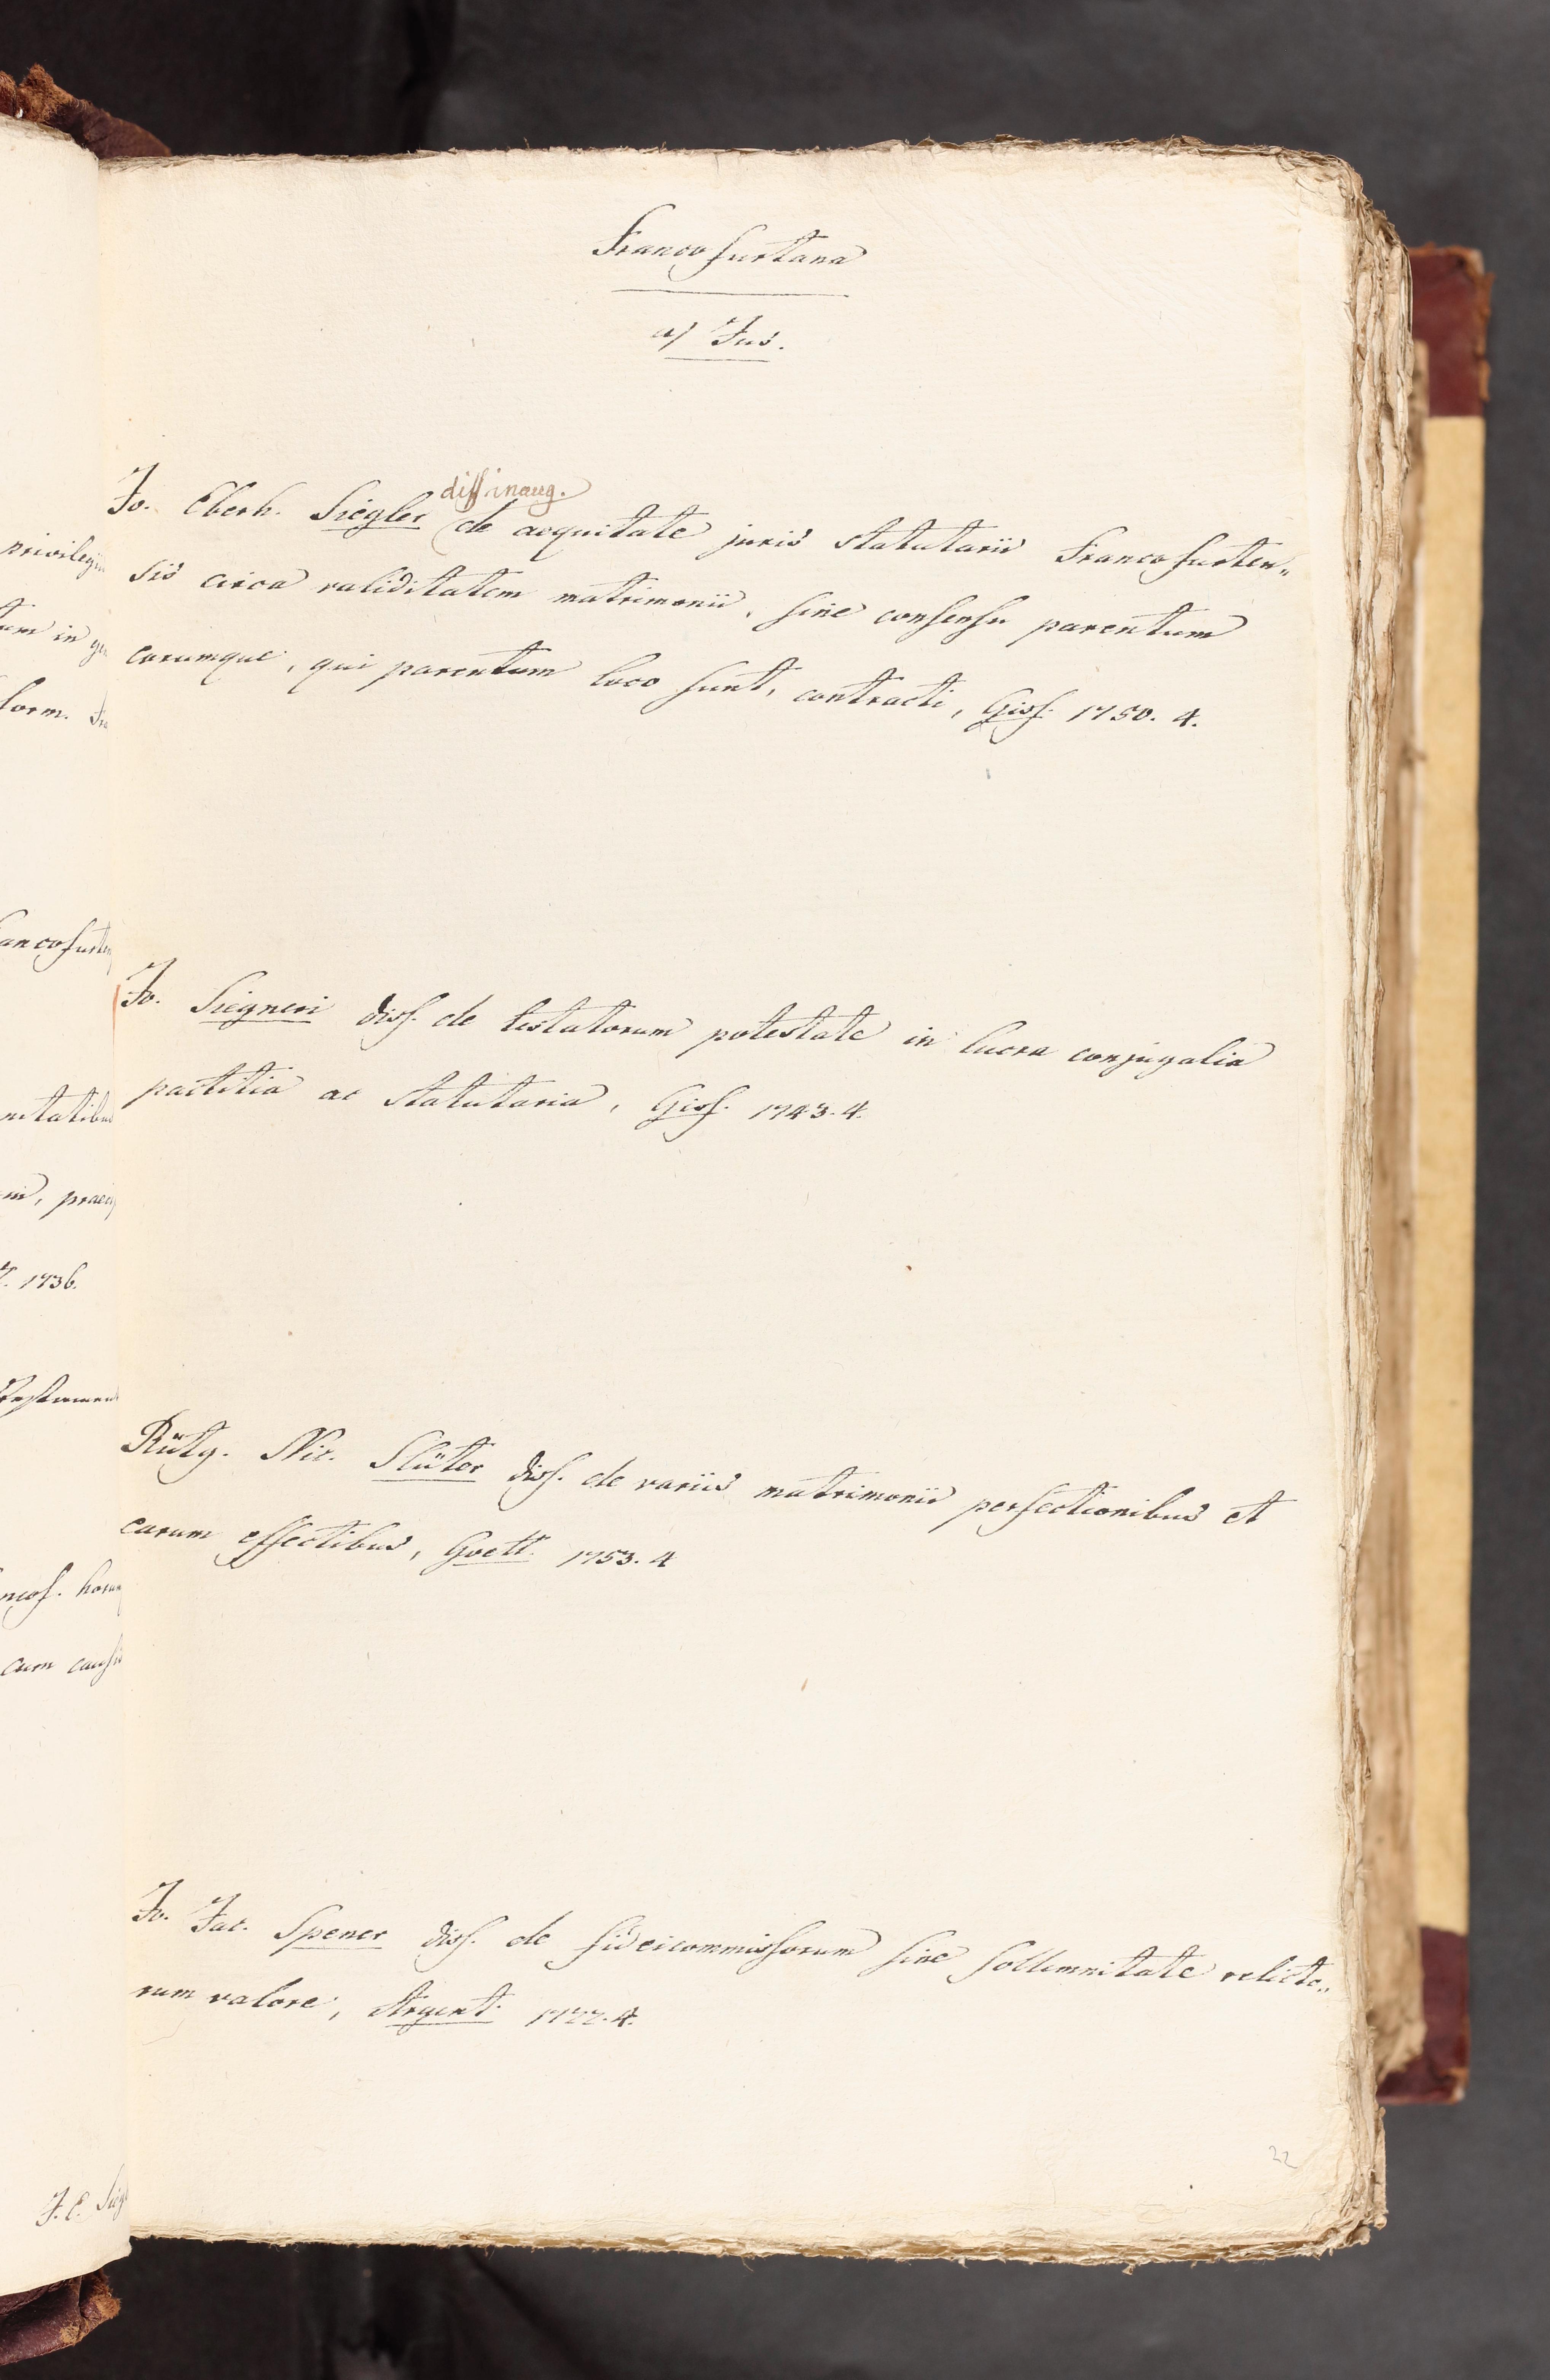 privilegiu
tum in ge
form. Fra
ancofurten
nitatibus
prae
7. 1736.
Testamen
ncof. horum
cum causis
J. E. Siegl
Francofurtana
a) Jus.
diss. inaug.
Jo. Eberh. Siegler (de aequitate juris statutarii Francofurten„
sis circa validitatem matrimonii, sine consensu parentum
eorumque, qui parentum loco sunt, contracti, Giss. 1750. 4.
Jo. Siegneri diss. de testatorum potestate in lucra conjugalia
pactitia ac statutaria, Giss. 1743. 4.
Rütg. Nic. Slüter diss. de variis matrimonii perfectionibus et
earum effectibus, Goett. 1753. 4
Jo. Jac. Spener diss. de fideicommissorum sine sollemnitate relicto„
rum valore, Argent. 1722. 4.
22